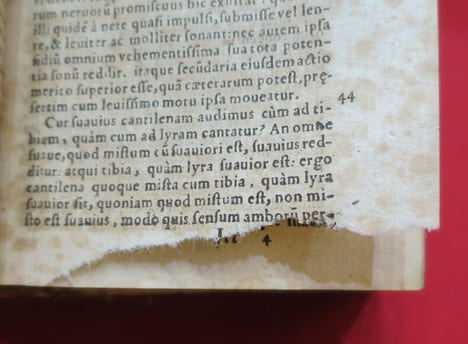 rum neruorũ promiscuus hic exultat : quo-
illi quidẽ à nete quasi impulsi, submisse vel len-
te, & leuiter ac molliter sonant: nec autem ipsa
fidiũ omnium vehementissima sua tota poten-
tia sonũ reddit. itaque secũdaria eiusdem actio
merito superior esse, quã cæterarum potest, præ-
sertim cum leuissimo motu ipsa moueatur.
Cur suauius cantilenam audimus cùm ad ti- 44
biam, quàm cum ad lyram cantatur? An omne
suaue, quod mistum cũ suauiori est, suauius red-
ditur: atqui tibia, quàm lyra suauior est: ergo
cantilena quoque mista cum tibia, quàm lyra
suauior sit, quoniam quod mistum est, non mi-
sto est suauius, modo quis sensum amborũ per-
4